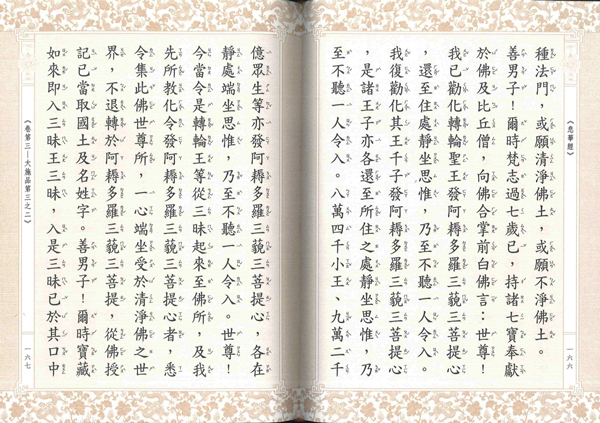 《悲華經》
種法門，或願清淨佛土，或願不淨佛土。
善男子！爾時梵志過七歲已，持諸七寶奉獻
於佛及比丘僧，向佛合掌前白佛言：世尊！
我已勸化轉輪聖王發阿耨多羅三藐三菩提心
，還至住處靜坐思惟，乃至不聽一人令入。
我復勸化其王千子發阿耨多羅三藐三菩提心
，是諸王子亦各還至所住之處靜坐思惟，乃
至不聽一人令入。八萬四千小王、九萬二千
一六六
億眾生等亦發阿耨多羅三藐三菩提心，各在
靜處端坐思惟，乃至不聽一人令入。世尊！
今當令是轉輪王等從三昧起來至佛所，及我
先所教化令發阿耨多羅三藐三菩提心者，悉
令集此佛世尊所，一心端坐受於清淨佛之世
界，不退轉於阿耨多羅三藐三菩提，從佛授
記已當取國土及名姓字。善男子！爾時寶藏
如來即入三昧王三昧，入是三昧已於其口中
《卷第三－大施品第三之二》
一六七